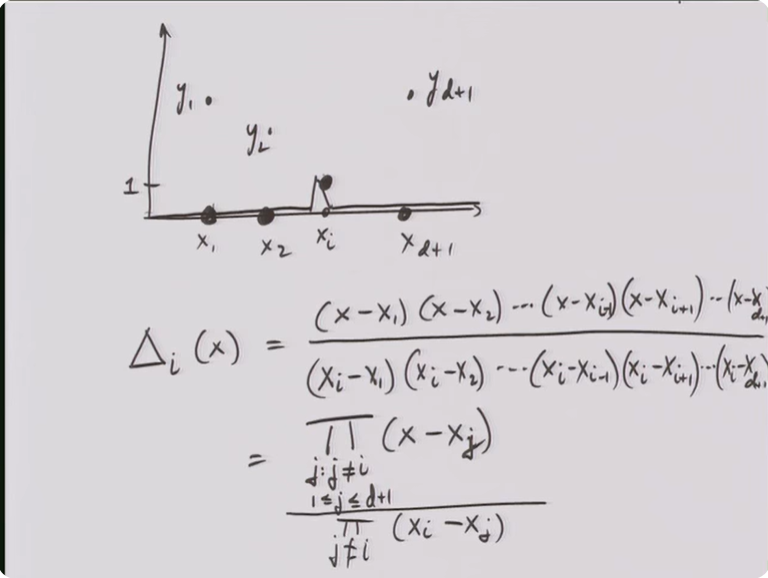 y₁ . . y_{d+1}
y₂
1
x₁ x₂ x_i x_{d+1}
Δ_i (x) = \frac{(x-x₁)(x-x₂)···(x-x_{i-1})(x-x_{i+1})···(x-x_{d+1}}{(x_i-x₁)(x_i-x₂)····(x_i-x_{i-1})(x_i-x_{i+1})···(x_i-x_{d+1}}
= \frac{∏_{j:j≠i, 1≤j≤d+1} (x-x_j)}{∏_{j≠i} (x_i-x_j)}